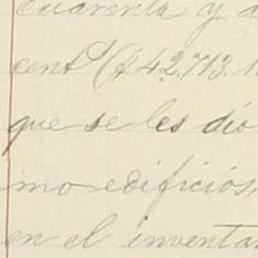 cuarenta y
cent ($42.713.
que se les dió
mo edificios,
en el inventa